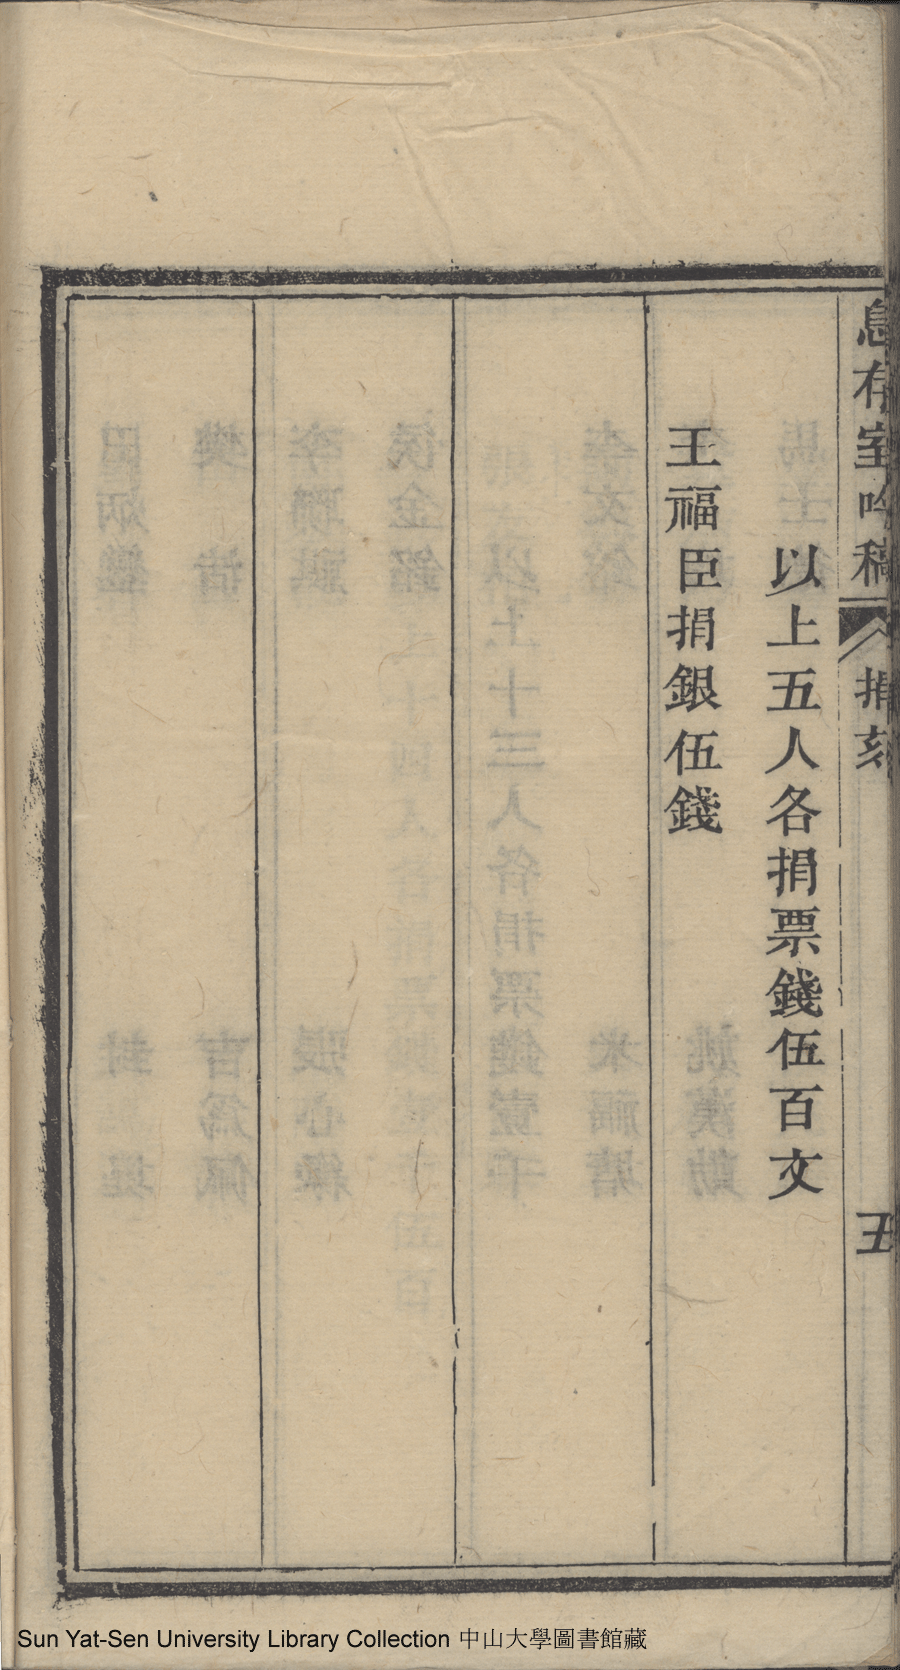 息存室吟稿 捐刻 五
以上五人各捐票錢伍百文
王福臣捐銀伍錢
Sun Yat-Sen University Library Collection 中山大學圖書館藏